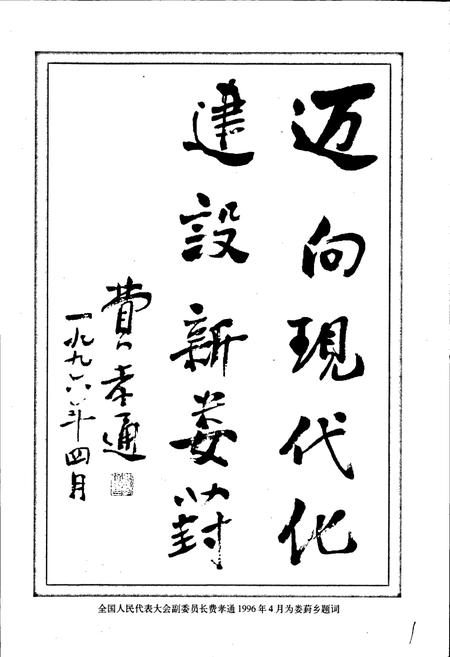 迈向現代化
建設新娄葑
費孝通
一九九六年四月
全国人民代表大会副委员长费孝通1996年4月为娄葑乡题词
1